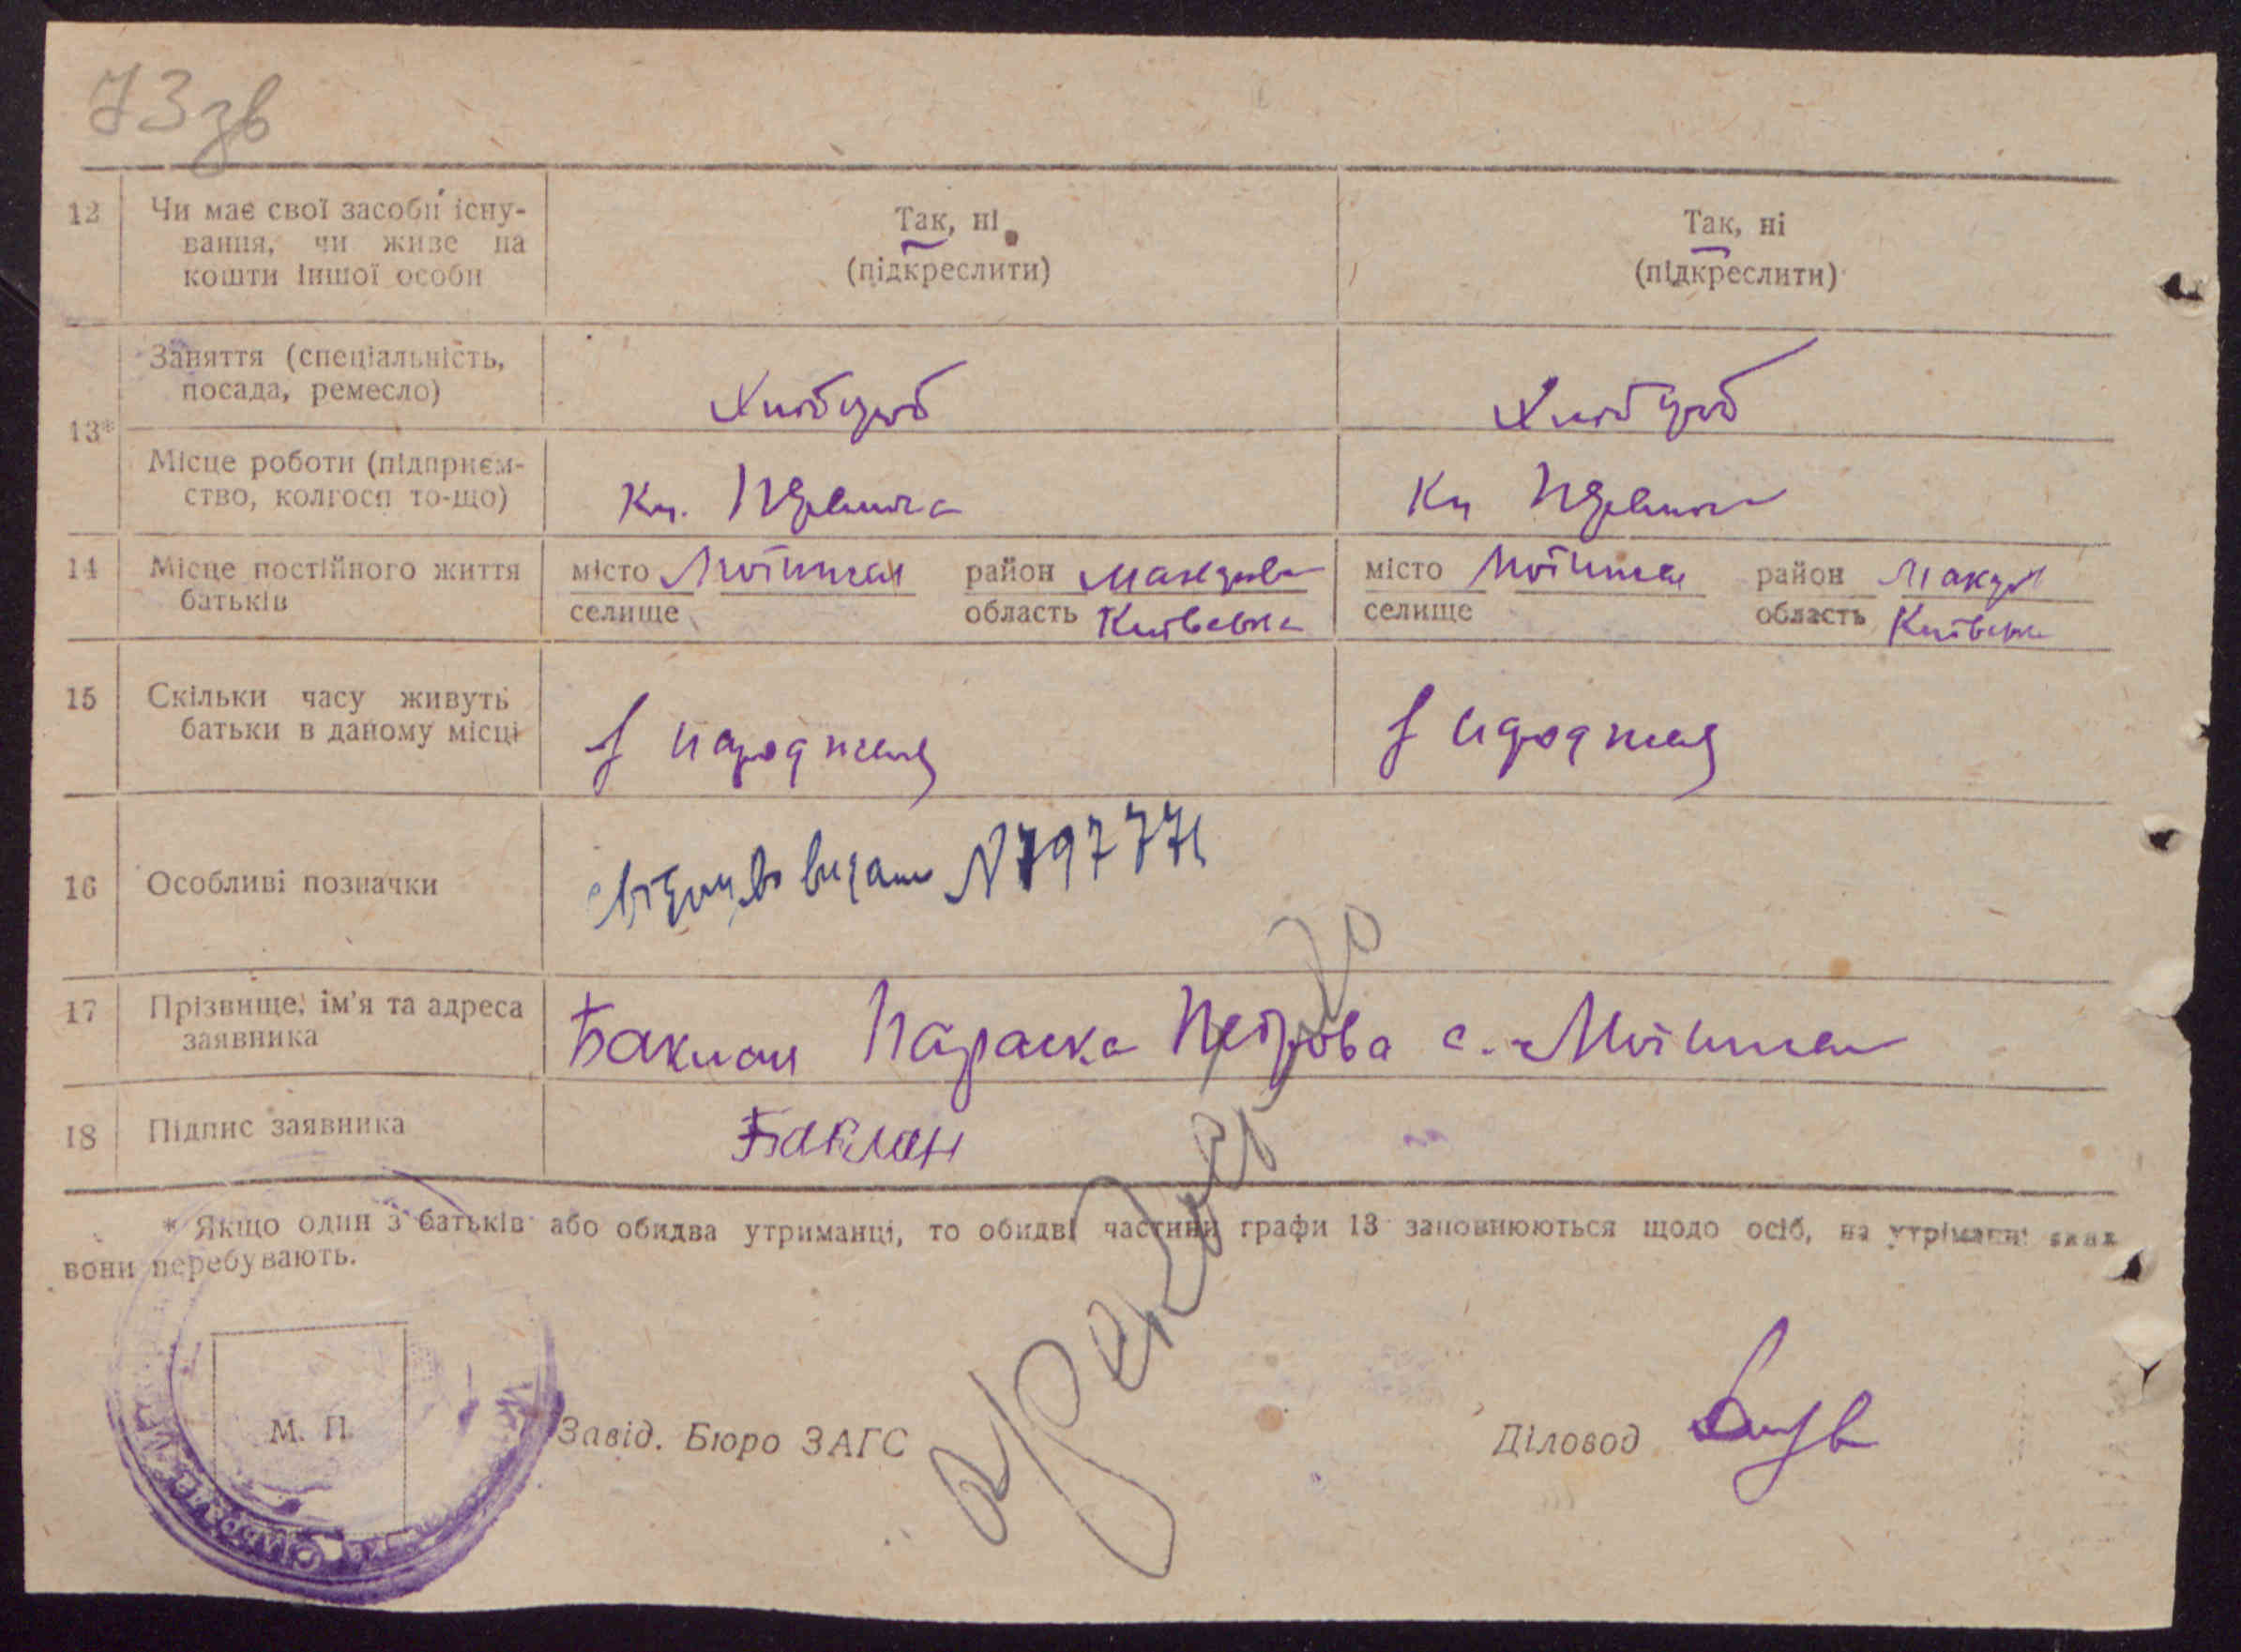 73 зв
12 Чи має свої засоби існу-
вання, чи живе на
кошти іншої особи
Так, ні
(підкреслити)
Так, ні
(підкреслити)
13*
Заняття (спеціальність,
посада, ремесло)
Хлібороб
Хлібороб
Місце роботи (підприєм-
ство, колгосп то-що)
14 Місце постійного життя
батьків
місто
селище
район
область Київська
місто
селище
район
область Київська
15 Скільки часу живуть
батьки в даному місці
з народження
з народження
16 Особливі позначки
видано N
17 Прізвище, ім’я та адреса
заявника
Баклан Параска Петрова с.
18 Підпис заявника
Баклан
* Якщо один з батьків або обидва утриманці, то обидві частини графи 13 заповнюються щодо осіб, на утріманні яких
вони перебувають.
М. П.
Завід. Бюро ЗАГС
Діловод